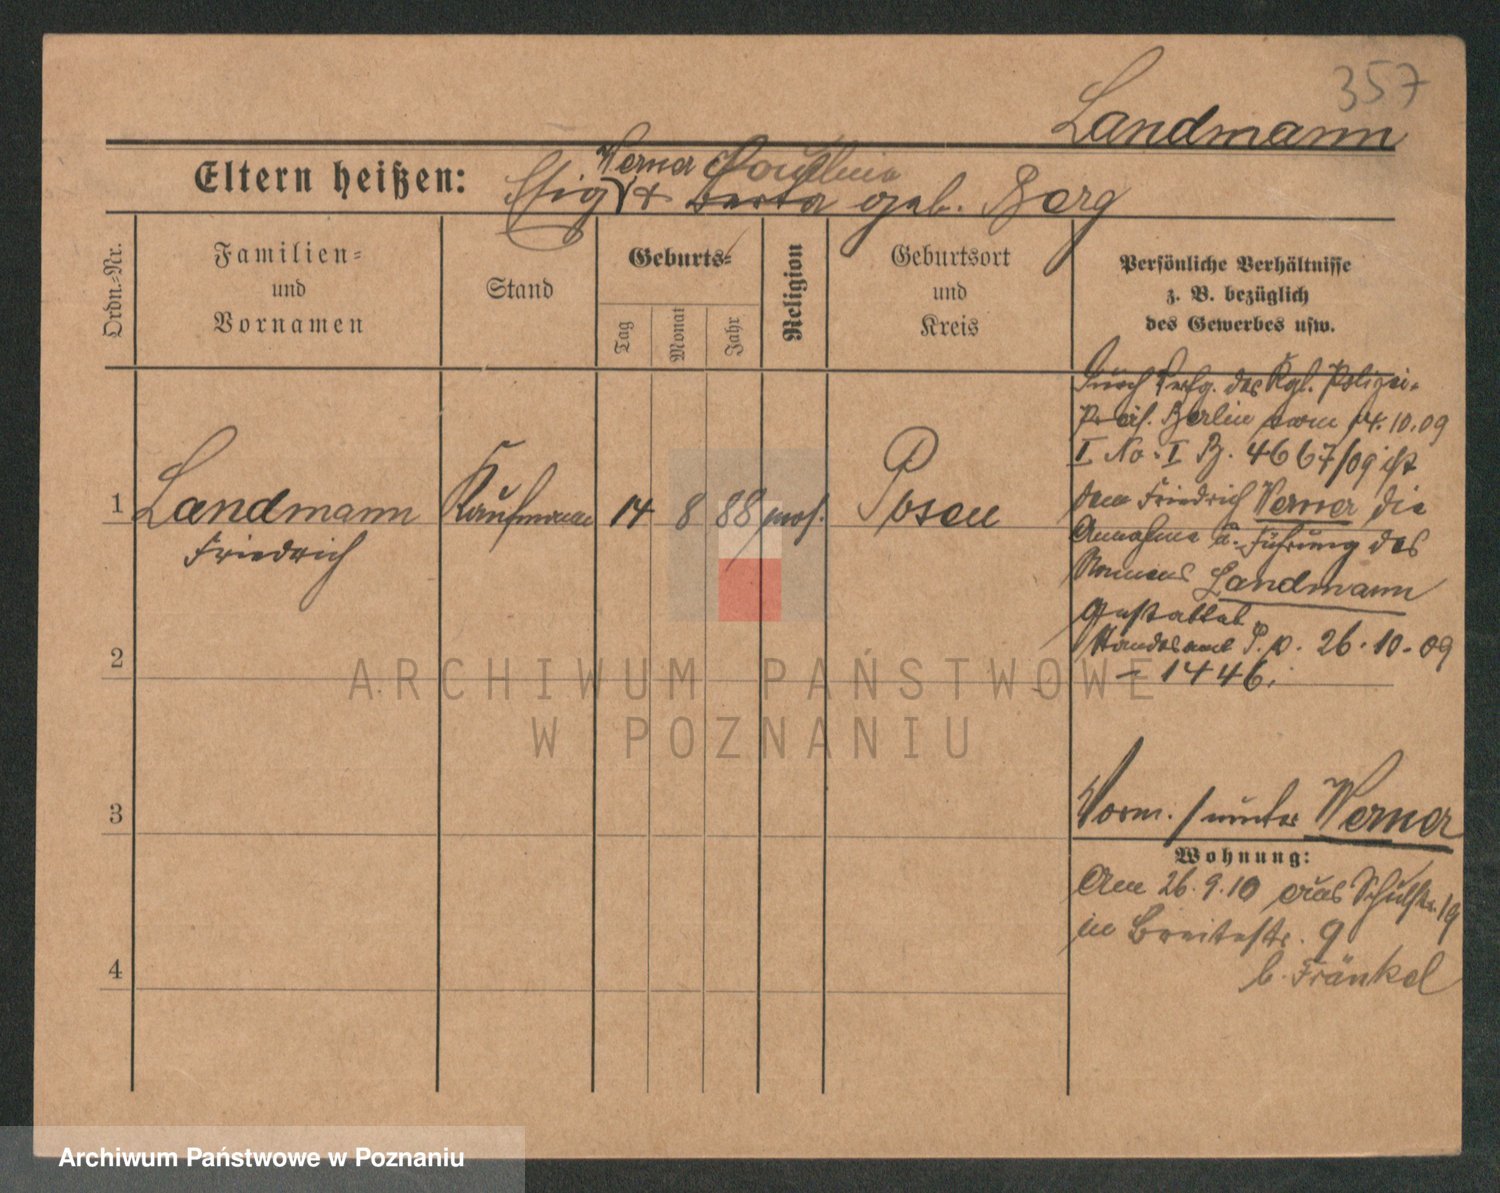 357
Landmann
Eltern heißen:
Werner Pauline
& Berta geb. Berg
Ordn.-Nr.
Familien-
und
Vornamen
Stand
Geburts-
Tag
Monat
Jahr
Religion
Geburtsort
und
Kreis
Persönliche Verhältnisse
z. B. bezüglich
des Gewerbes usw.
1
Landmann
Friedrich
Kaufmann
14
8
88
mos.
Posen
Durch Verfg. des Kgl. Polizei-
Präs. Berlin vom 14.10.09
I No. I B. 4667/09 ist
dem Friedrich Werner die
Annahme u. Führung des
Namens Landmann
gestattet
Standesamt P. v. 26.10.09
- 1446.
2
3
4
Vorm. / unter Werner
Wohnung:
Am 26.9.10 aus Schulstr. 19
in Breitestr. 9
b. Fränkel
ARCHIWUM PAŃSTWOWE
W POZNANIU
Archiwum Państwowe w Poznaniu